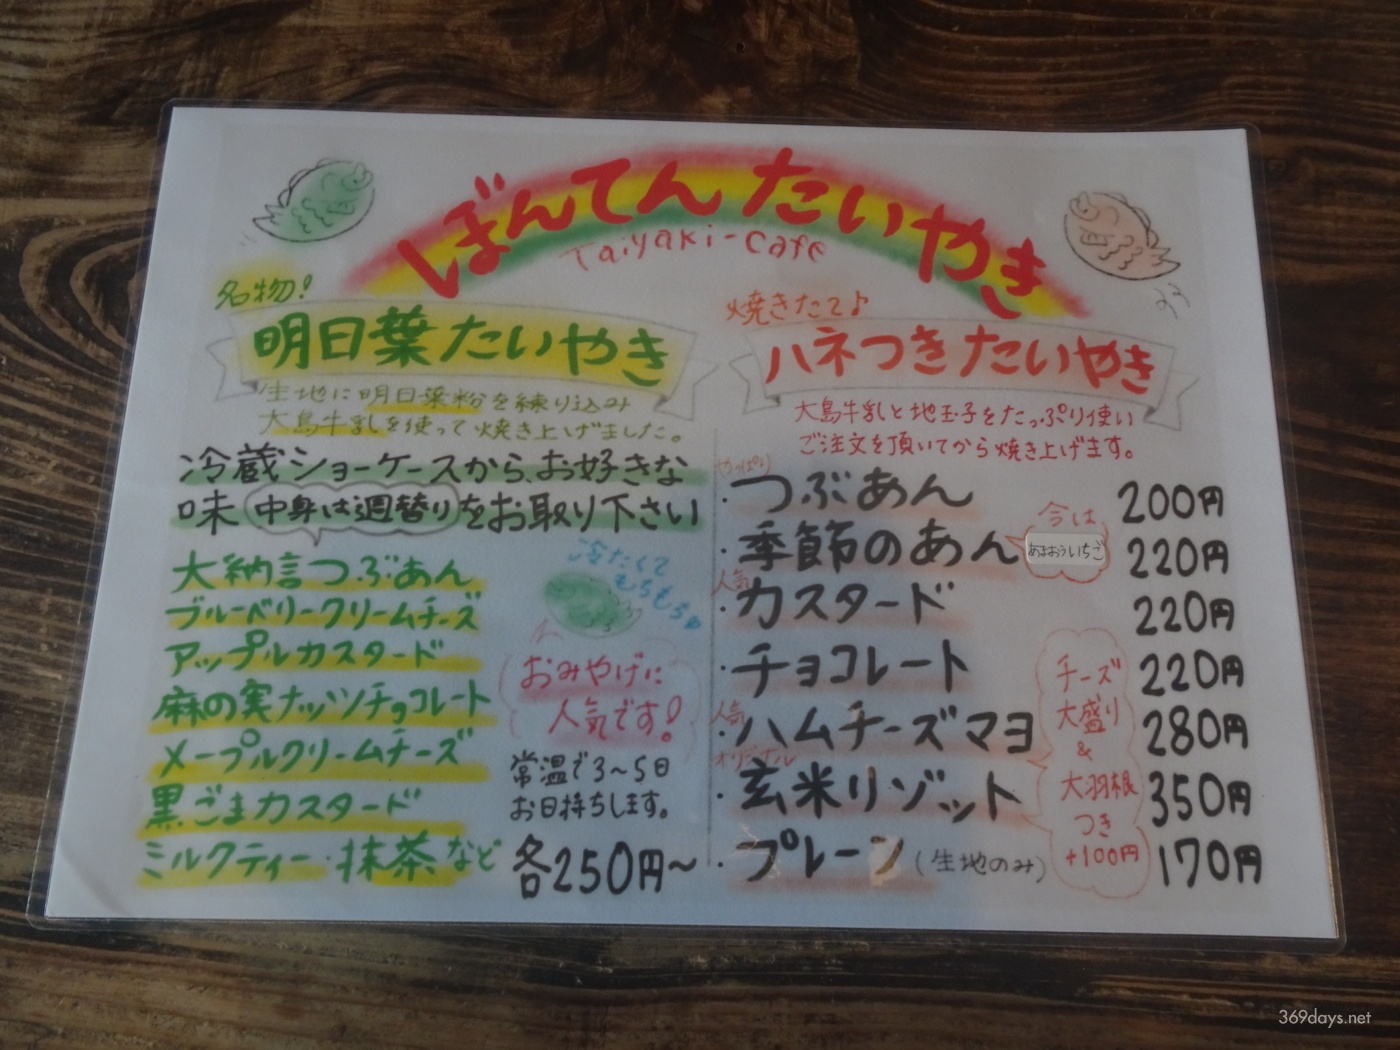 ぼんてん たいやき
Taiyaki-Cafe
名物!
明日葉たいやき
生地に明日葉粉を練り込み
大島牛乳を使って焼き上げました。
冷蔵ショーケースから、お好きな
味 中身は週替り をお取り下さい
大納言つぶあん
ブルーベリークリームチーズ
アップルカスタード
麻の実ナッツチョコレート
メープルクリームチーズ
黒ごまカスタード
ミルクティー・抹茶 など
冷たくて
もちもち
おみやげに
人気です!
常温で3~5日
お日持ちします。
各250円~
焼きたて♪
ハネつきたいやき
大島牛乳と地玉子をたっぷり使い
ご注文を頂いてから焼き上げます。
やっぱり
・つぶあん 200円
・季節のあん 220円
今は
あまおういちご
人気
・カスタード 220円
・チョコレート 220円
人気
・ハムチーズマヨ 280円
オリジナル
・玄米リゾット 350円
・プレーン(生地のみ) 170円
チーズ
大盛り
&
大羽根
つき
+100円
369days.net